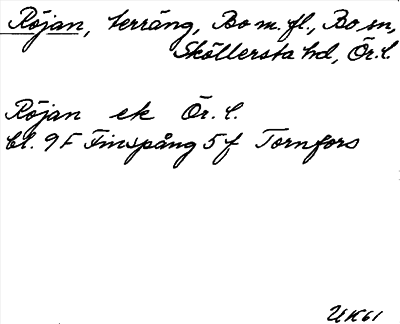 Röjan, terräng, Bo m. fl., Bo sn,
Sköllersta hd, Ör. l.
Röjan ek Ör. l.
bl. 9F Finspång 5f Tornfors
UK61